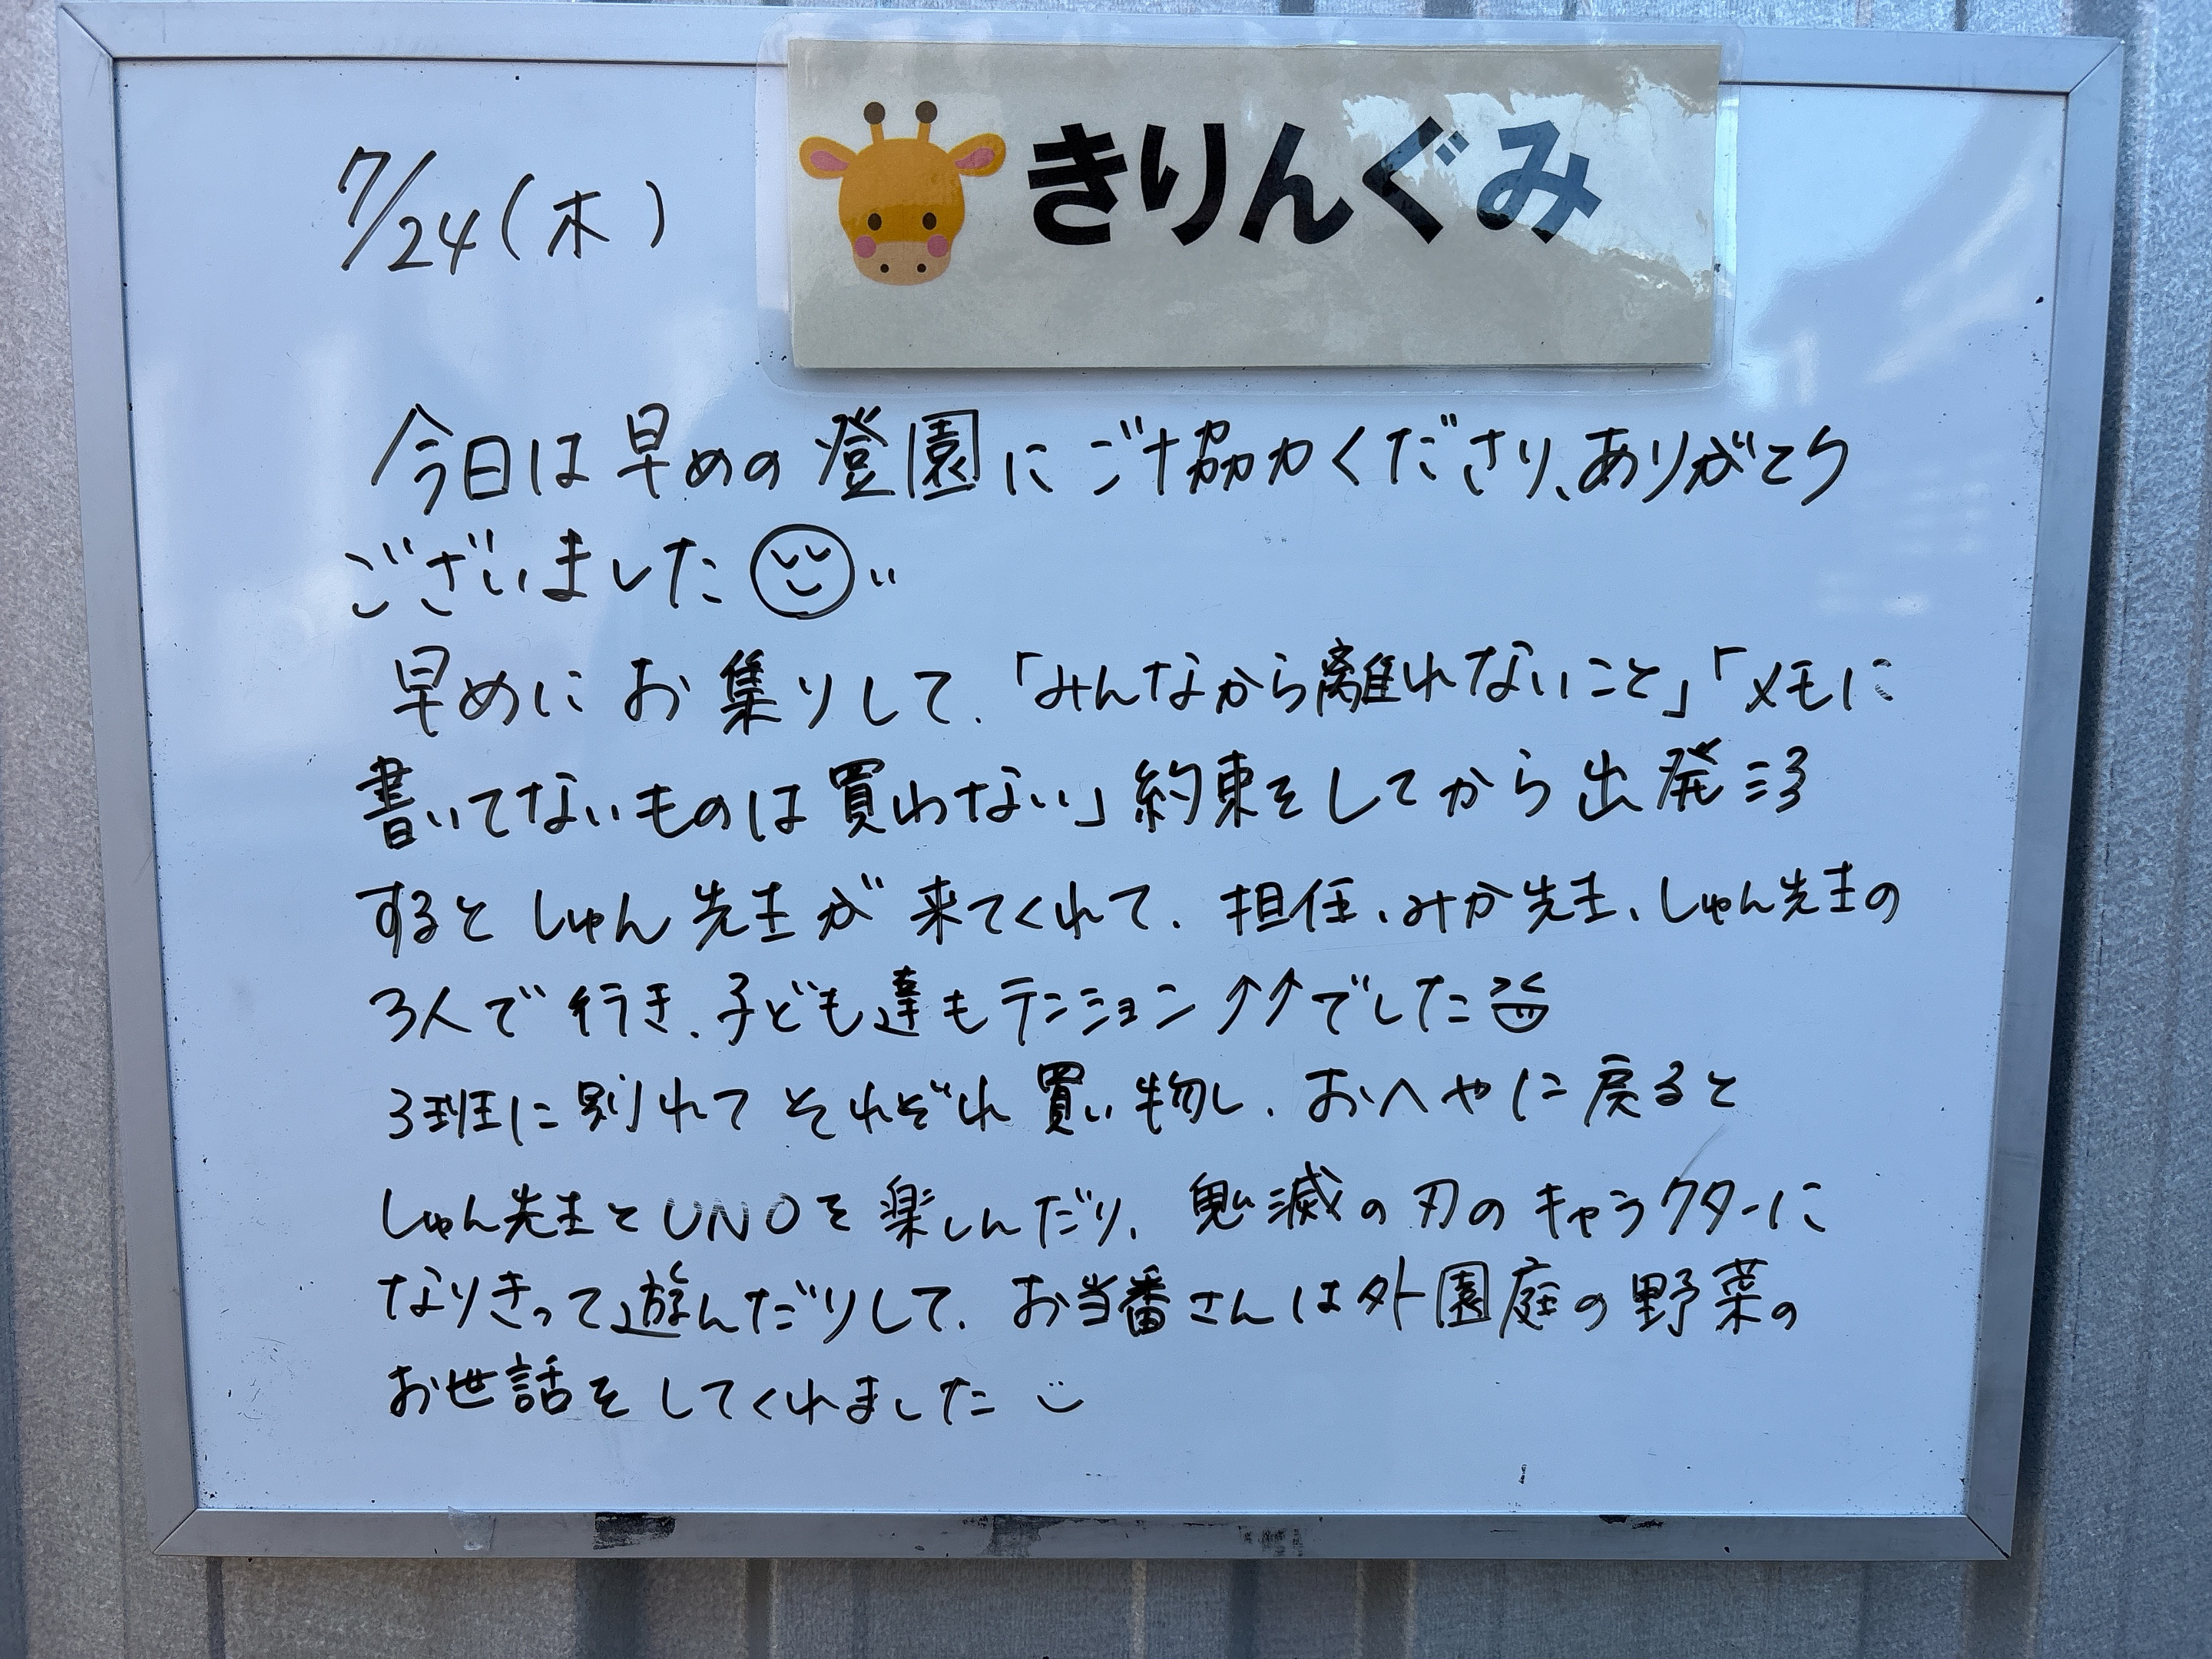 7/24(木)
きりんぐみ
今日は早めの登園にご協力くださり、ありがとう
ございました
早めにお集りして、「みんなから離れないこと」「メモに
書いてないものは買わない」約束をしてから出発
するとしゅん先生が来てくれて、担任、みか先生、しゅん先生の
3人で行き、子ども達もテンション↑↑でした
3班に別れてそれぞれ買い物し、おへやに戻ると
しゅん先生とUNOを楽しんだり、鬼滅の刃のキャラクターに
なりきって遊んだりして、お当番さんは外園庭の野菜の
お世話をしてくれました